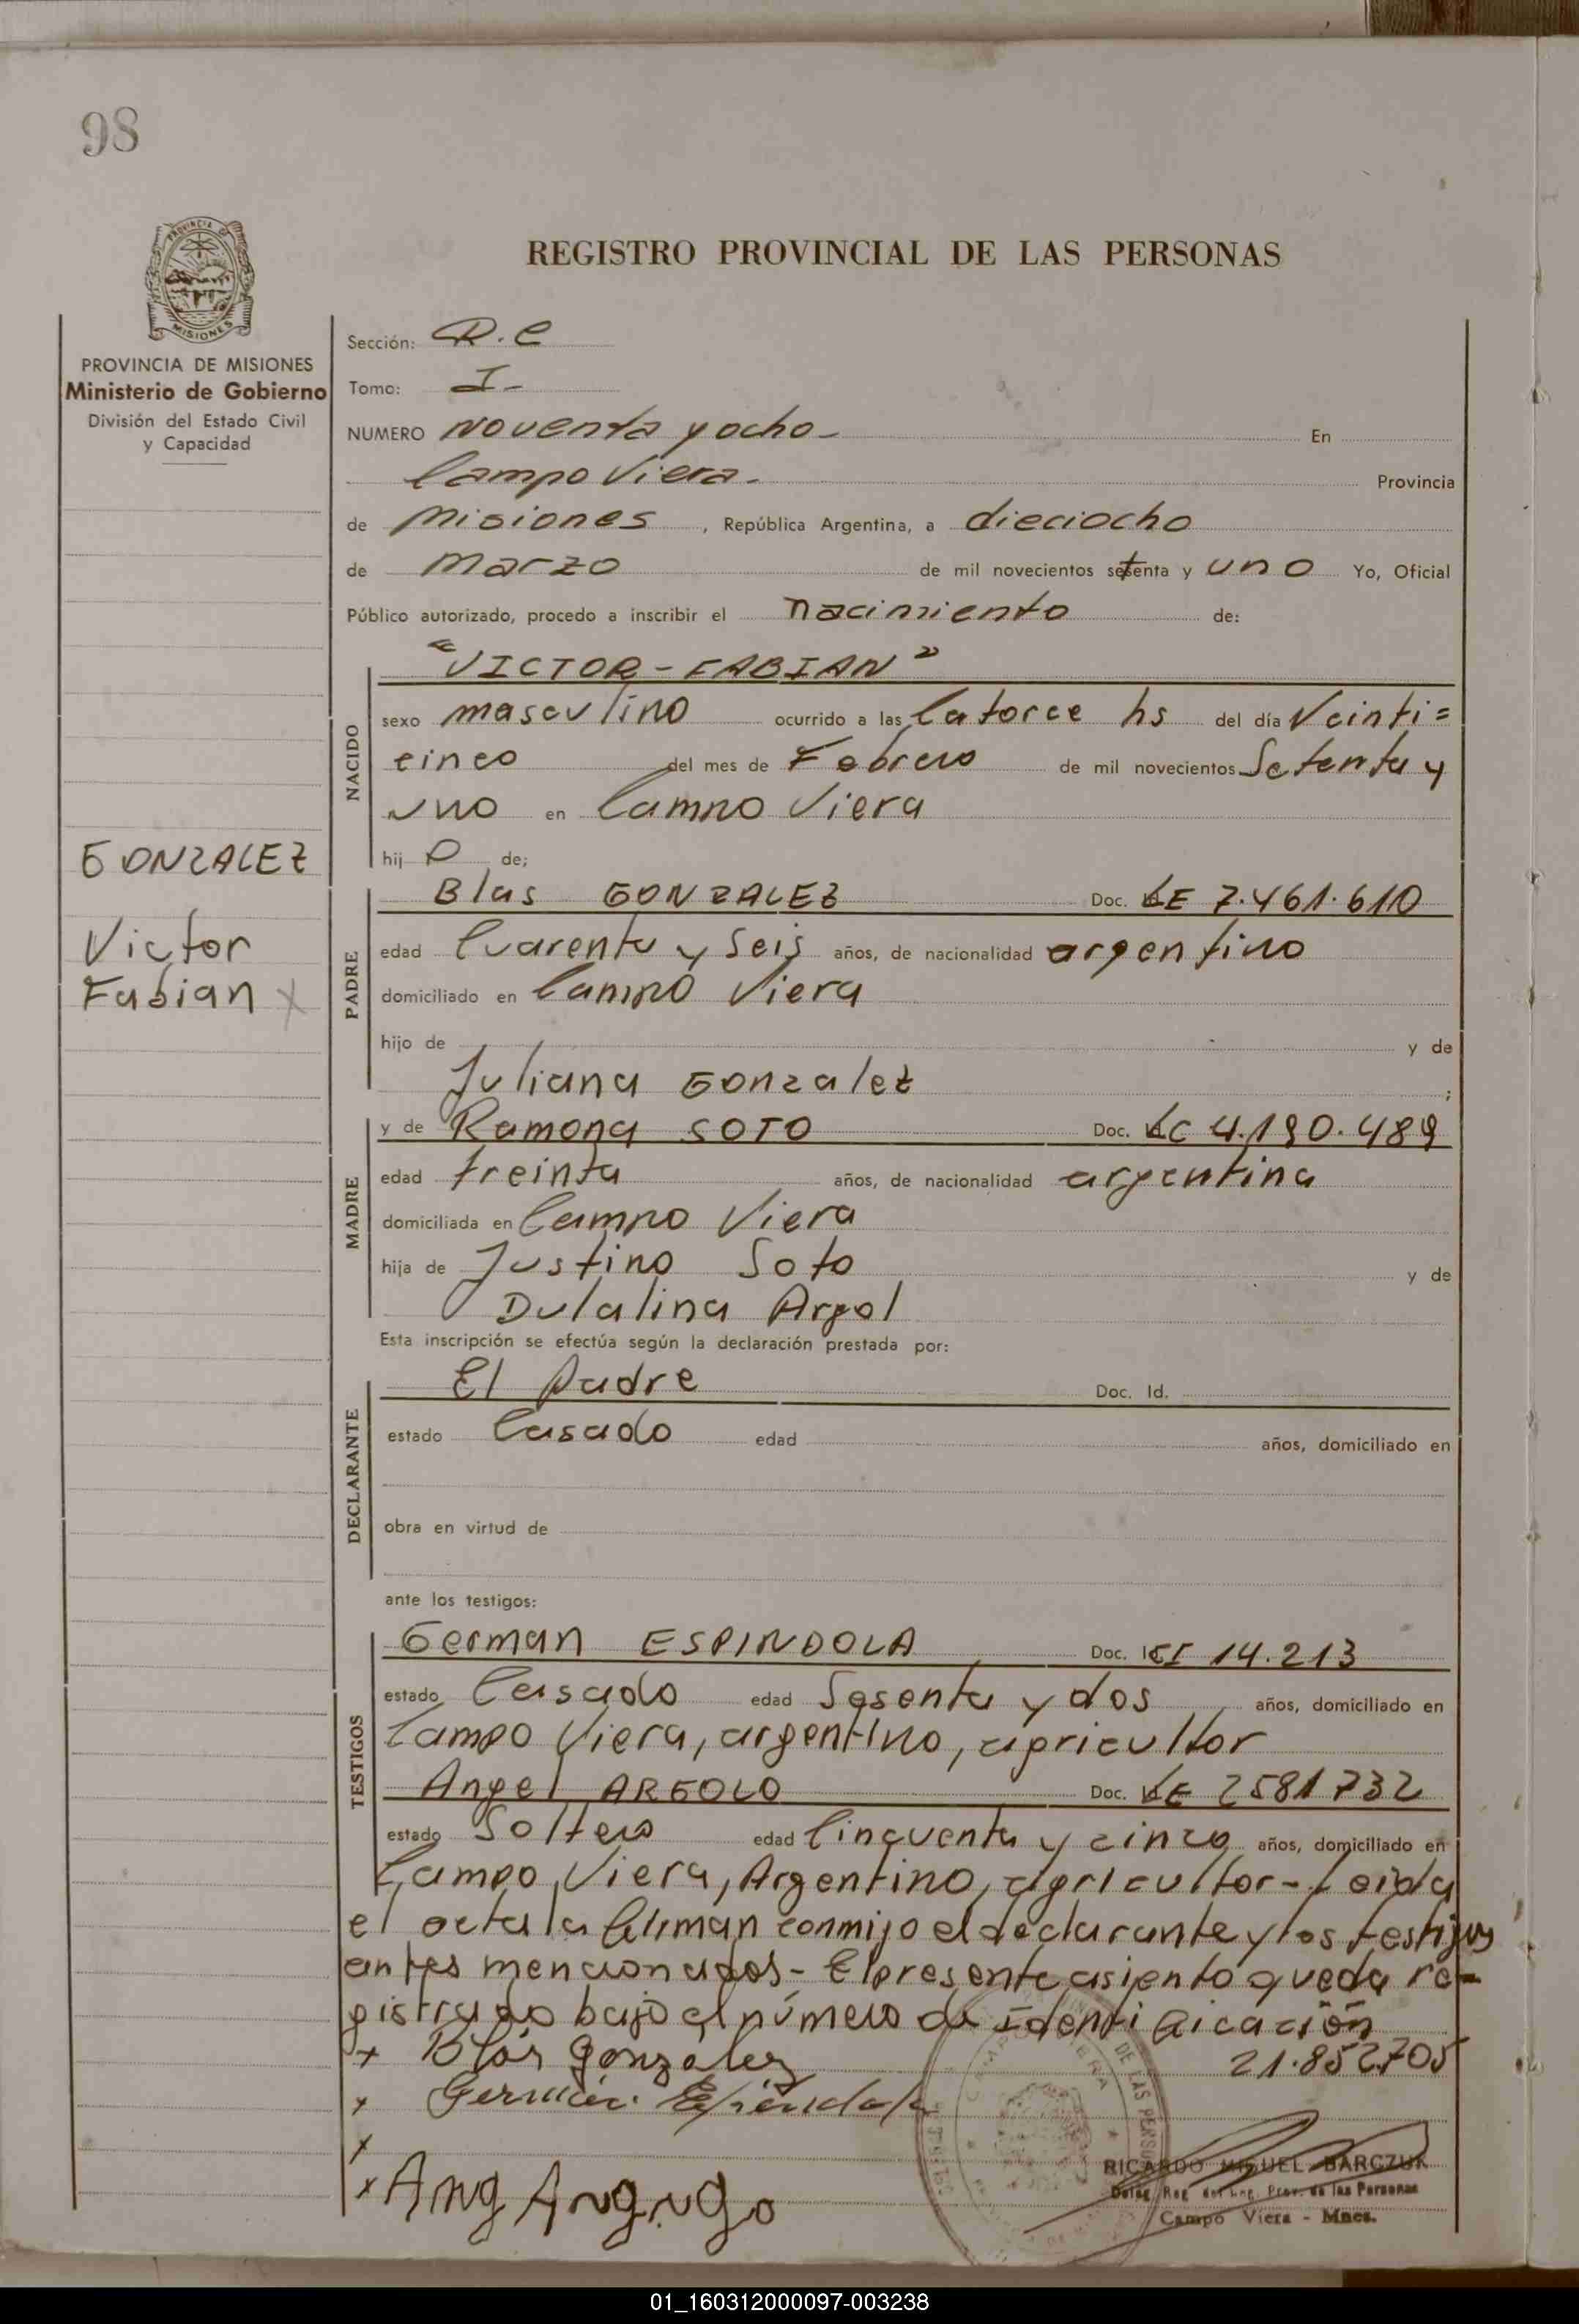 98
PROVINCIA DE
MISIONES
REGISTRO PROVINCIAL DE LAS PERSONAS
PROVINCIA DE MISIONES
Ministerio de Gobierno
División del Estado Civil
y Capacidad
GONZALEZ
Victor
Fabian X
Sección: D.C
Tomo: I-
NUMERO Noventa y ocho- En
Campo Viera. Provincia
de Misiones , República Argentina, a dieciocho
de Marzo de mil novecientos setenta y uno Yo, Oficial
Público autorizado, procedo a inscribir el nacimiento de:
"VICTOR-FABIAN"
NACIDO
sexo masculino ocurrido a las Catorce hs del día Veinti=
cinco del mes de Febrero de mil novecientos Setenta y
uno en Campo Viera
hij o de;
PADRE
Blas GONZALEZ Doc. LE 7.461.610
edad Cuarenta y Seis años, de nacionalidad argentino
domiciliado en Campo Viera
hijo de y de
Juliana Gonzalez ;
MADRE
y de Ramona SOTO Doc. LC 4.190.489
edad treinta años, de nacionalidad argentina
domiciliada en Campo Viera
hija de Justino Soto y de
Dulalina Argol
Esta inscripción se efectúa según la declaración prestada por:
DECLARANTE
El Padre Doc. Id.
estado Casado edad años, domiciliado en
obra en virtud de
ante los testigos:
TESTIGOS
German ESPINDOLA Doc. CI 14.213
estado Casado edad Sesenta y dos años, domiciliado en
Campo Viera, argentino, agricultor
Angel ARGOLO Doc. LE 2581732
estado Soltero edad Cincuenta y cinco años, domiciliado en
Campo Viera, Argentino, agricultor- Leida
el acta la firman conmigo el declarante y los testigos
antes mencionados- El presente asiento queda re-
gistrado bajo el número de Identificación
x Blás Gonzalez 21.852705
x German Espindola
x
x Ang Argugo
RICARDO MIGUEL BARCZUK
Campo Viera - Mnes.
01_160312000097-003238